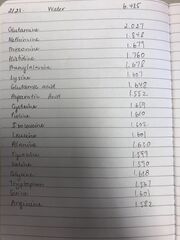 Water 6.485
Glutamine 2.027
Methionine 1.848
Threonine 1.679
Histidine 1.760
Phenylalanine 1.678
Lysine 1.607
Glutamic Acid 1.648
Aspartic Acid 1.552
Cysteine 1.659
Proline 1.660
Isoleucine 1.602
Leucine 1.601
Alanine 1.630
Tyrosine 1.599
Valine 1.590
Glycine 1.608
Tryptophan 1.567
Serine 1.601
Arginine 1.582